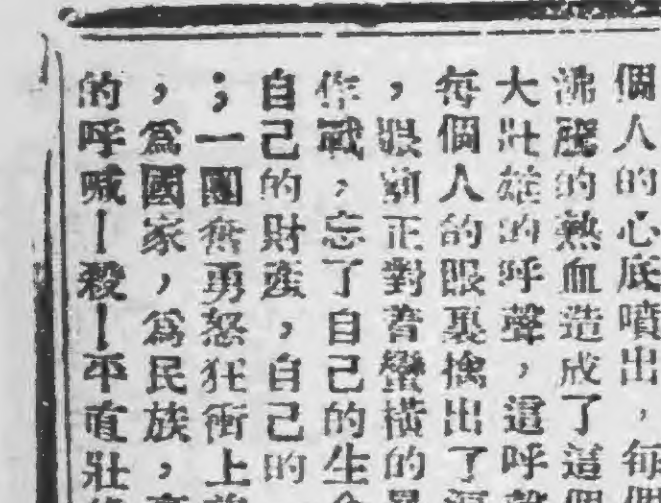 個人的心底噴出，每
沸騰的熱血造成了這個
大壯雄的呼聲，這呼
每個人的眼裏擒出了
，眼前正對着蠻橫的
作戰，忘了自己的生
自己的財產，自己的
；一團奮勇怒狂衝上
，爲國家，爲民族，
的呼喊－殺－平直壯